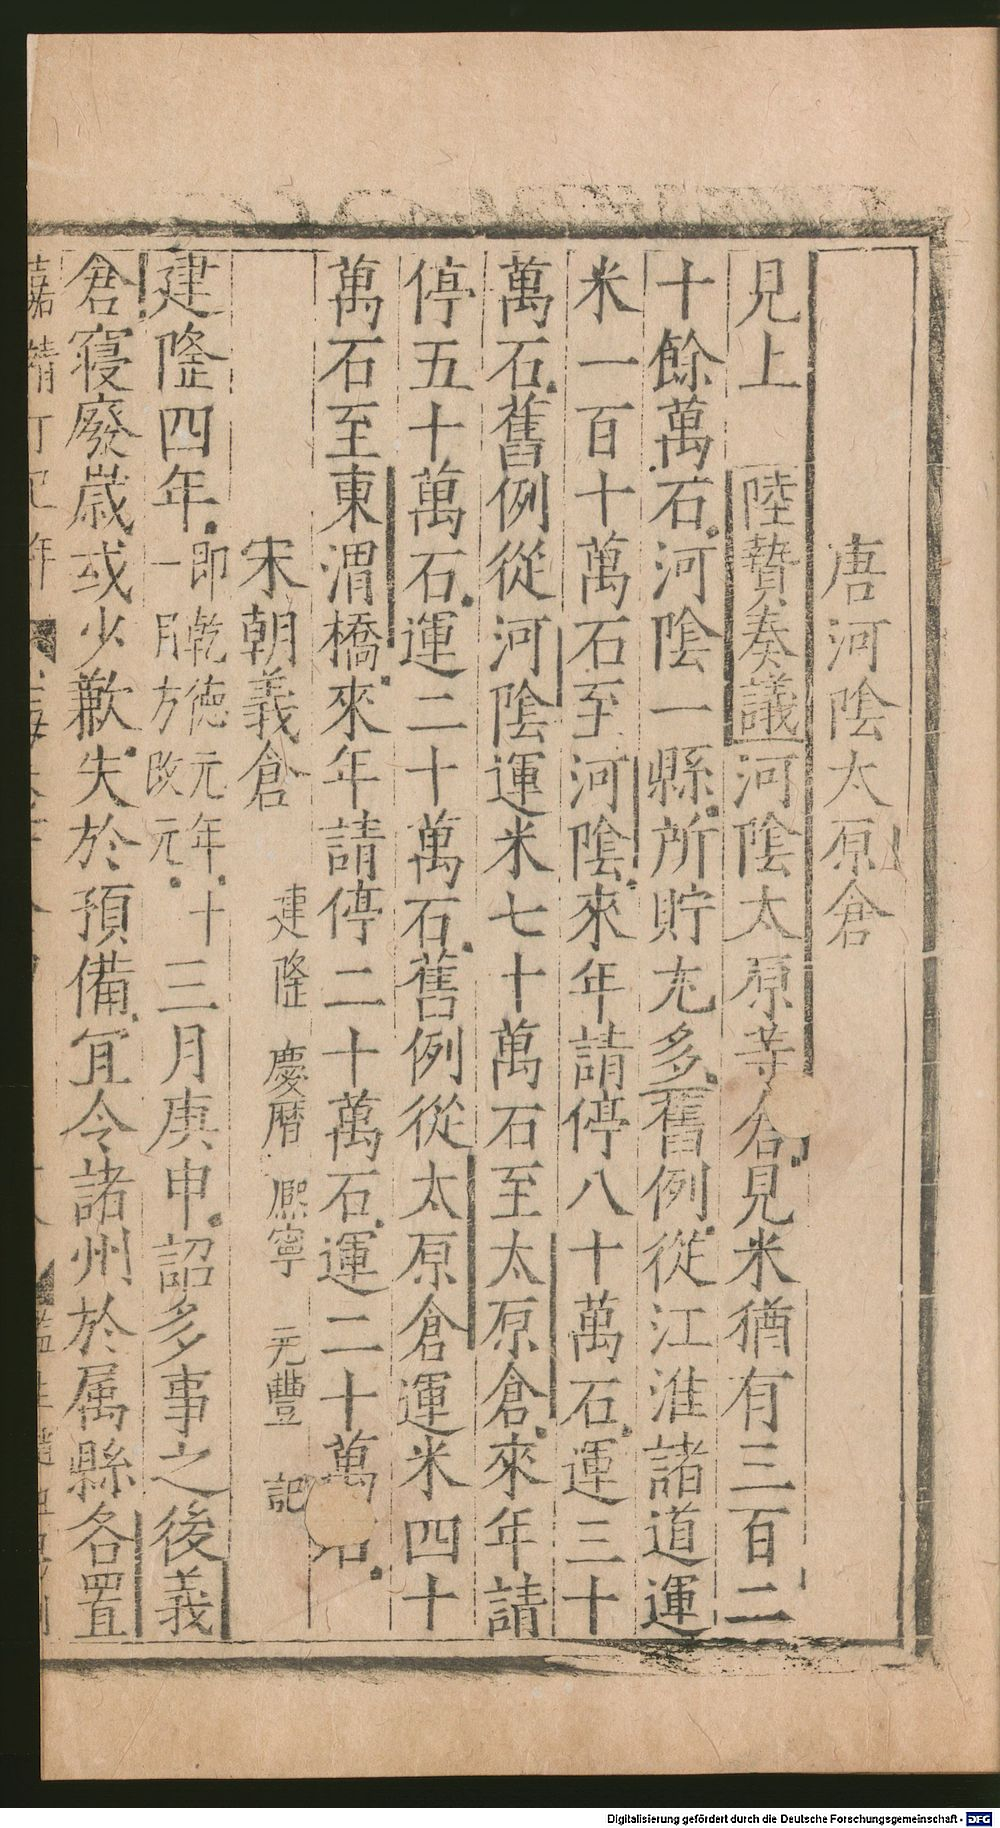 唐河隂太原倉
見上 陸贄奏議河隂太原等倉見米猶有三百二
十餘萬石河隂一縣所貯尤多舊例從江淮諸道運
米一百十萬石至河隂來年請停八十萬石運三十
萬石舊例從河隂運米七十萬石至太原倉來年請
停五十萬石運二十萬石舊例從太原倉運米四十
萬石至東渭橋來年請停二十萬石運二十萬石
宋朝義倉 建隆 慶曆 熈寧 元豐 記
建隆四年即乾德元年十一月方改元三月庚申詔多事之後義
倉寖廢歲或少歉失於預備宜令諸州於属縣各置
嘉靖丁巳年
Digitalisierung gefördert durch die Deutsche Forschungsgemeinschaft - DFG